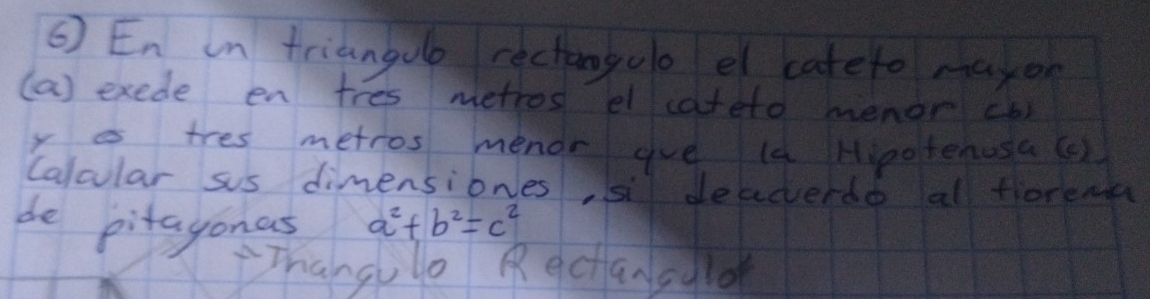 6) En un triangulo rectangulo el cateto mayor
(a) exede en tres metros el cateto menor (b)
y es tres metros menor que la Hipotenusa (c).
Calcular sus dimensiones, si deacuerdo al tiorema
de pitagonas a²+b²=c²
Triangulo Rectangulo